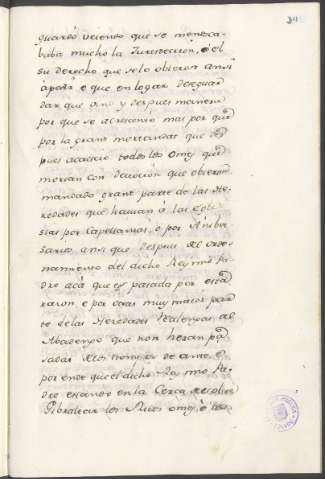 guardó veiendo que se menosca-
baba mucho la Jurisdiccion, é el
su derecho que se lo obieron ansi
á pasar e que en logar de se guar-
dar que ono y despues manera
por que se acrescento mas por que
por la grant mortandat que des-
pues acaesció todos los omes que
morian con devoción que obieron
mandado grant parte de las He-
redades que havian á las Igle-
sias por Capellanias, o por Aniber-
sarios ansi que despues del orde-
namiento del dicho Rey mio Pa-
dre acá que es pasada por esta
razon, e por otras muy maior par-
te de las Heredades Realengas al
Abadengo que non heran pa-
sadas de los tiempos de ante. E
por ende que el dicho Rey mio Pa-
dre estando en la Cerca sobre
Gibraltar los Ricos omes, é los